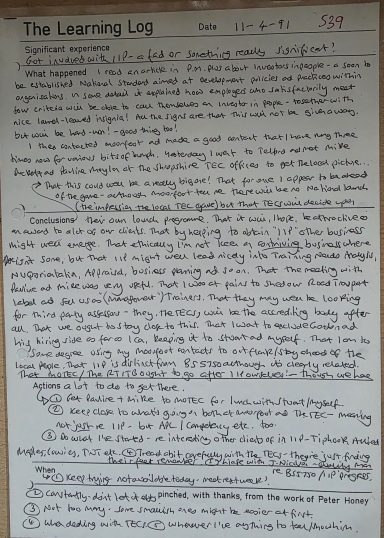 The Learning Log Date 11-4-91 539
Significant experience
Got involved with IIP - a fad or something really significant!
What happened I read an article in P.M. plus about Investors in people - a soon to
be established National Standard aimed at development policies and practices within
organisations. In some detail it explained how employers who satisfactorily meet
four criteria will be able to call themselves an Investor in People - together with
nice laurel-leaved insignia! All the signs are that this will not be given away,
but will be hard-won! - good thing too!
I then contacted and made a good contact that I have rung three
times now for various bits of bumph. Yesterday I went to Telford and met Mike
and Pauline at the Shropshire TEC offices to get the local picture...
That this could well be a really big one! That for one I appear to be ahead
of the game - although tell me there will be no National launch
(the impression the local TEC gave) but that TECs will decide upon
Conclusions their own launch programme. That it will, I hope, be attractive as
an award to a lot of our clients. That by helping to obtain "IIP" other business
might well emerge. That ethically I'm not keen on contriving business where
there isn't some, but that IIP might well lead nicely into Training Needs Analysis,
Appraisal, business planning and so on. That the meeting with
Pauline and Mike was very useful. That I was at pains to shed our Road Transport
label and sell us as (management) Trainers. That they may well be looking
for third party assessors - they, the TECs will be the accrediting body after
all. That we ought to stay close to this. That I want to exclude Gordon and
his hiring side as far as I can, keeping it to Stuart and myself. That I am to
some degree using my contacts to outflank/stay ahead of the
local people. That IIP is distinct from BS5750 although it's clearly related.
That MOTEC / the RTITB ought to go after IIP ourselves! - Though we have
Actions a lot to do to get there.
① Get Pauline + Mike to MOTEC for lunch with Stuart/myself
② Keep close to what's going on both at and the TEC - meaning
not just re IIP - but APL / Competency etc. too.
③ Do what I've started - re interesting other clients of in IIP - Tiphook,
Maples, TNT etc. ④ Tread a bit carefully with the TECs - they're just finding
their feet remember. ⑤ Liaise with J. - Quality Man
re BS5750 / IIP progress.
When
① Keep trying not available today - meet next week!
② Constantly - don't let it slip pinched, with thanks, from the work of Peter Honey
③ Not too many - some smallish ones might be easier at first.
④ When dealing with TECs ⑤ Whenever I've anything to tell/show him.